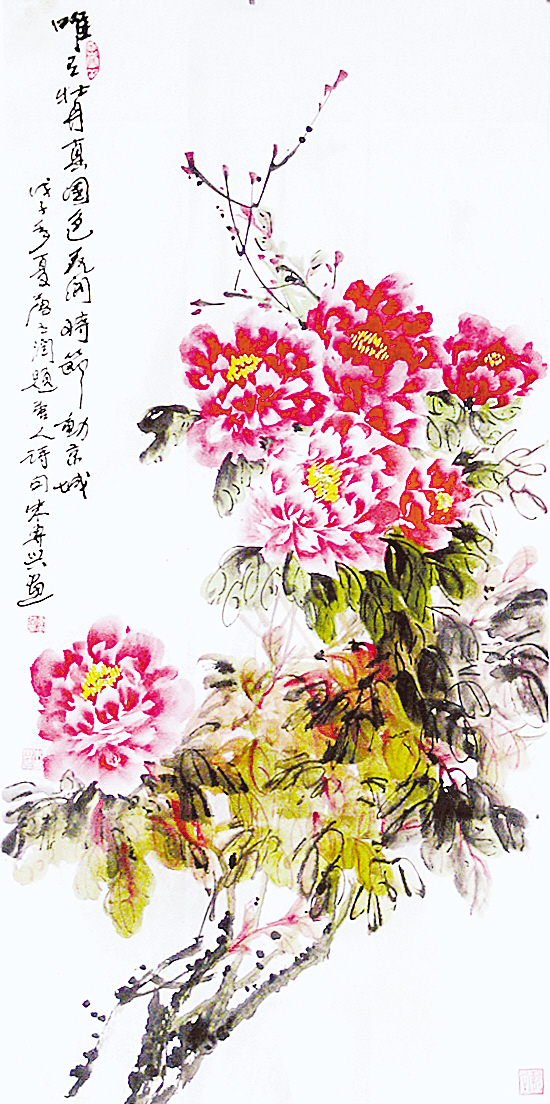 唯有牡丹真国色花开时节动京城
戊子年夏唐之润题唐人诗句宋寿兴画